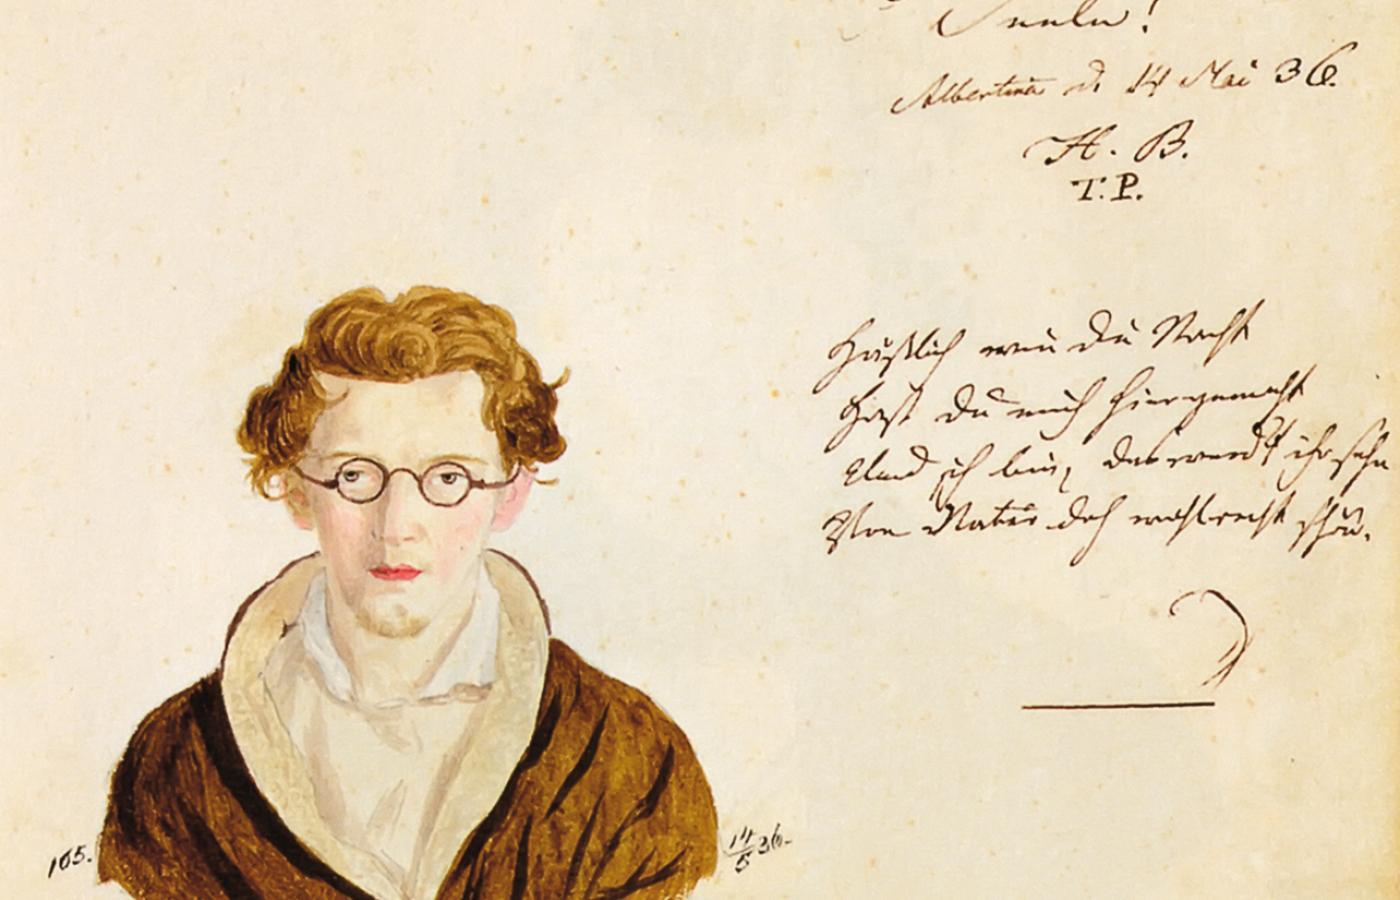 Albertina d. 14 Mai 36.
H. B.
T. P.
Häßlich wie die Nacht
Hast du mich hier gemacht
Und ich bin, das werd't ihr sehn
Von Natur doch wohl recht schön.
165.
14/5 36.